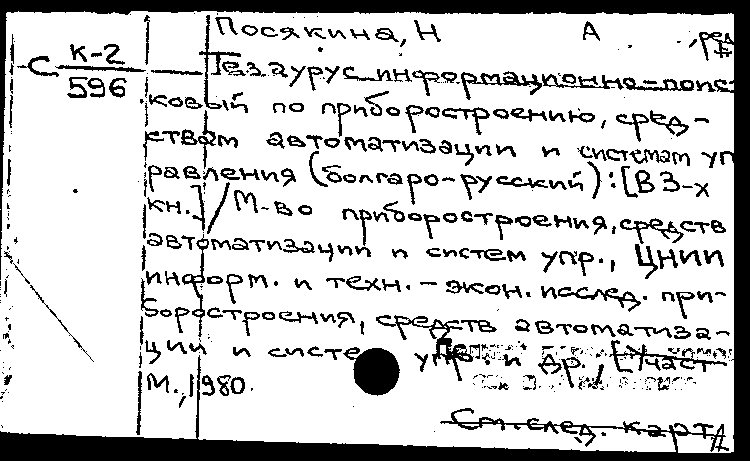 Посякина, Н А ., ред
С К-2
596
Тезаурус информационно-поис-
ковый по приборостроению, сред-
ствам автоматизации и системам уп
равления (болгаро-русский): [В 3-х
кн.] / М-во приборостроения, средств
автоматизации и систем упр., ЦНИИ
информ. и техн.-экон. исслед. при-
боростроения, средств автоматиза-
ции и систе упр. и др., [Участ
М., 1980.
См. след. карт